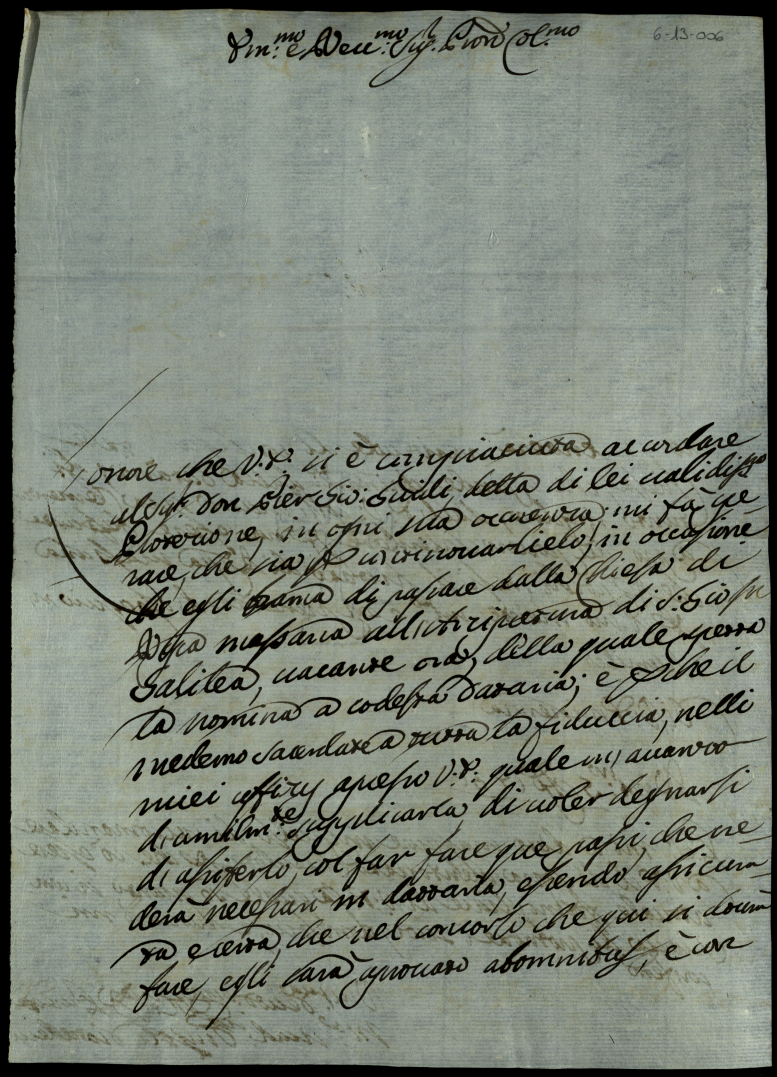 6-13-006
Ill.mo e Rev.mo Sig. Pron Col.mo
L'onore che V.S. si è compiaciuta accordare
al Sig. Don Pier Gio: della di lei validissma
Protezione, in ogni sua occorenza, mi fà spe-
rare, che sia per in occasione
che egli brama di passare dalla Chiesa di
all'Arcipretura di S. Gio: in
Galilea, vacante ora, della quale spetta
la nomina a codesta Dataria; è perche il
medemo Sacerdote a tutta la fiduccia, nelli
miei offizy apresso V.S. quale m'avanzo
di umilm.te supplicarla di voler degnarsi
di assisterlo, col far fare que passi, che ve-
derà necessari in Dattaria, essendo assicura-
ta e certa, che nel concorso che qui si dovrà
fare, egli sarà aprovato ab omnibus, è con